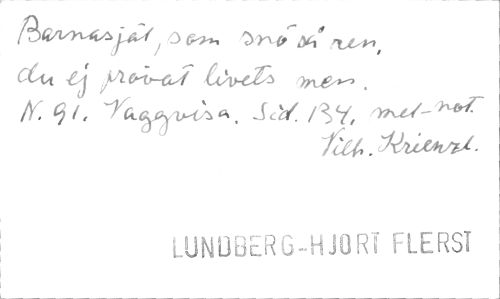 Barnasjäl, som snö så ren,
du ej prövat livets men.
N. 91. Vaggvisa. Sid. 134. mel-not.
Vilh. Krienzl.
LUNDBERG-HJORT FLERST